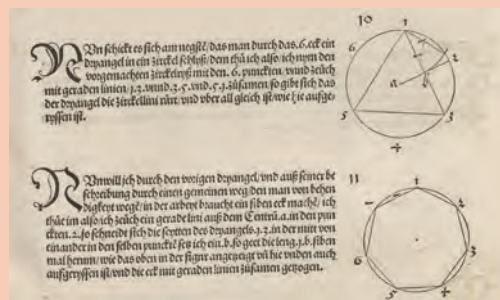 10
NUn schickt es sich am negstē/das man durch das.6.eck ein
dryangel in ein zirckel schlyß/dem thū ich also/ich nym den
vorgemachten zirckelryß mit den.6.puncten/vnnd zeüch
mit geraden linien/1.3.vnnd.3.5.vnd.5.1.zůsamen/so gibt sich das
der dryangel die zirckellini růrt/vnd vber all gleich ist/wie hie aufge=
ryssen ist.
1
6
2
a
b
5
3
4
11
NUn will jch durch den vorigen dryangel/vnd auß seiner be
schreibung durch einen gemeinen weg den man von behen
digkeyt wegē/in der arbeyt braucht ein siben eck machē/ich
thůe im also ich zeüch ein gerade lini auß dem Centrū.a.in den pun
cten.2.so schneidt sich die seyten des dryangels.1.3.in der mitt von
einander in den selben punckt setz ich ein.b.so geet die leng.1.b.siben
mal herumb/wie das oben in der figur angezeigt vn̄ hie vnden auch
aufgeryssen ist/vnd die eck mit geraden linien zůsamen gezogen.
1
7
2
6
3
5
4